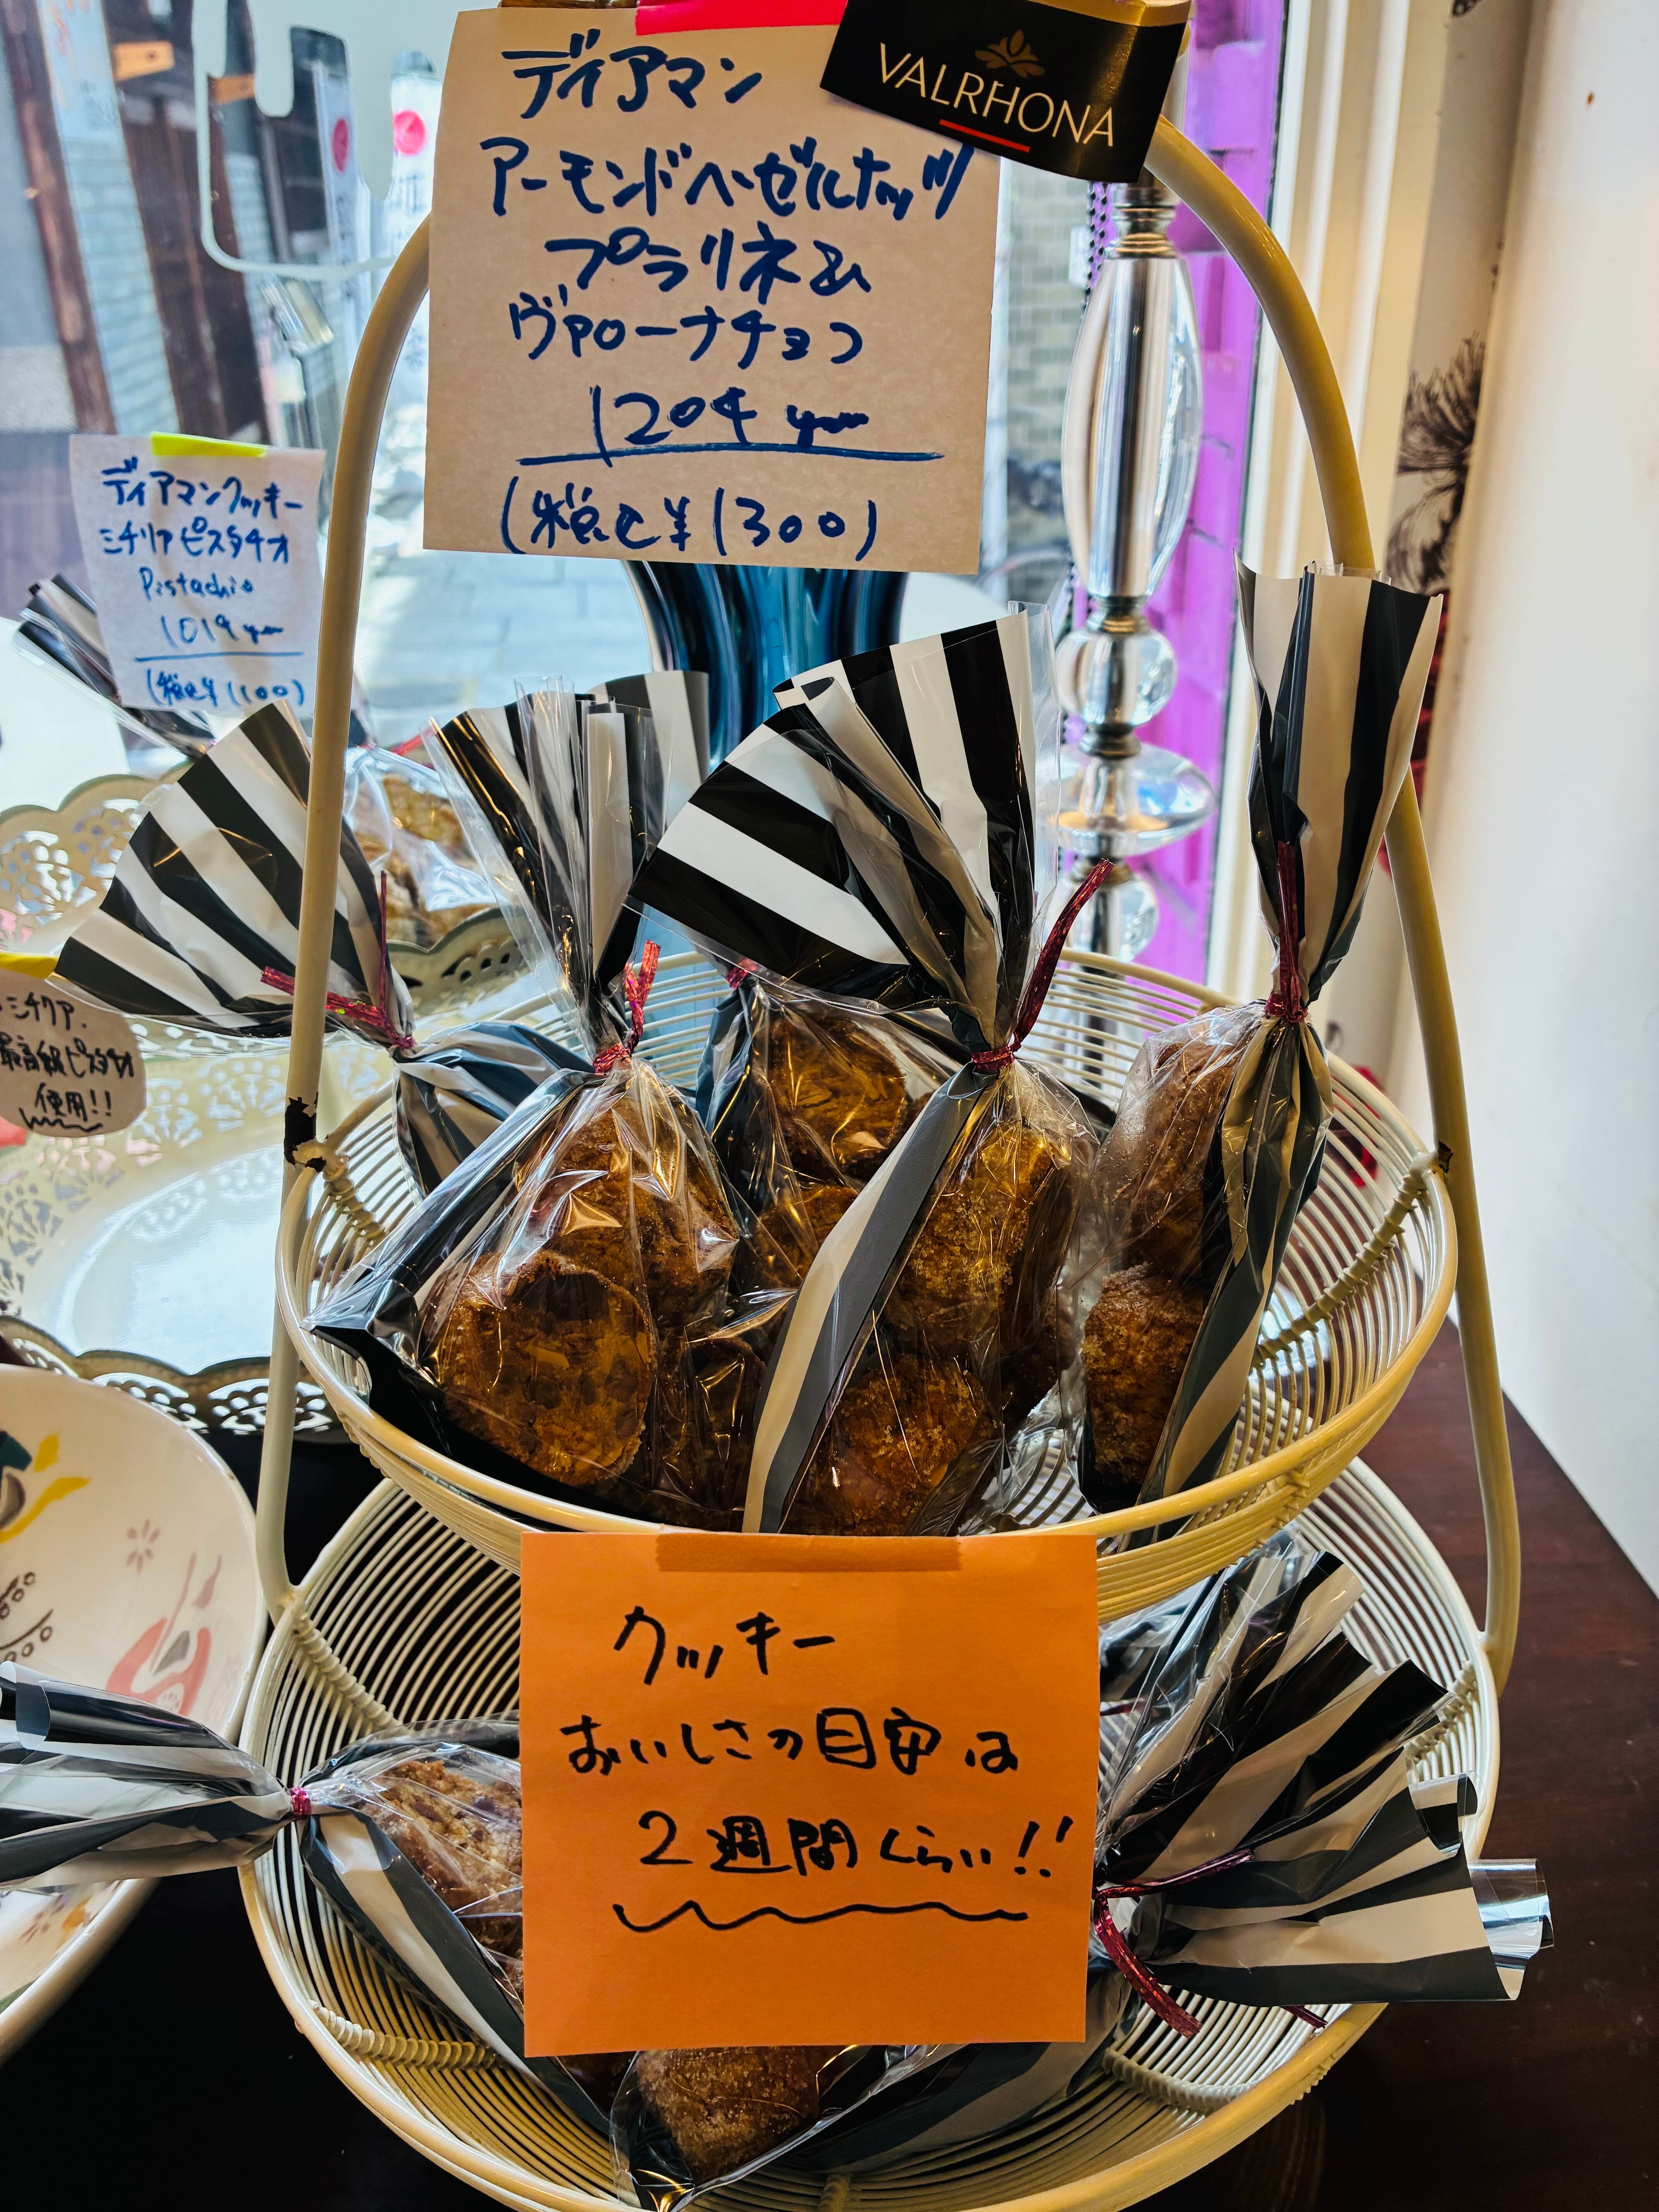 ディアマン
アーモンドヘーゼルナッツ
プラリネ&
ヴァローナチョコ
1204 yen
(税込¥1300)
VALRHONA
ディアマンクッキー
ミチリアピスタチオ
Pistachio
1019 yen
(税込¥1100)
ミチリア
最高級ピスタチオ
使用!!
クッキー
おいしさの目安は
2週間くらい!!